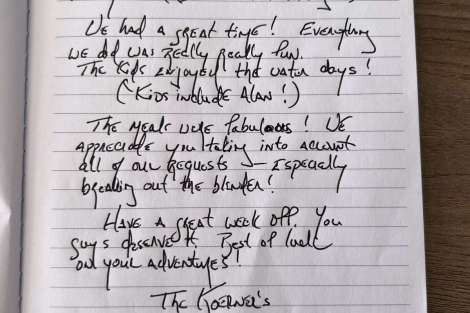 We had a great time! Everything
we did was really really fun.
The kids enjoyed the water days!
(*Kids include Alan!)
The meals were fabulous! We
appreciate you taking into account
all of our requests - Especially
breaking out the blender!
Have a great week off. You
guys deserve it. Best of luck
on your adventures!
The Koerner's